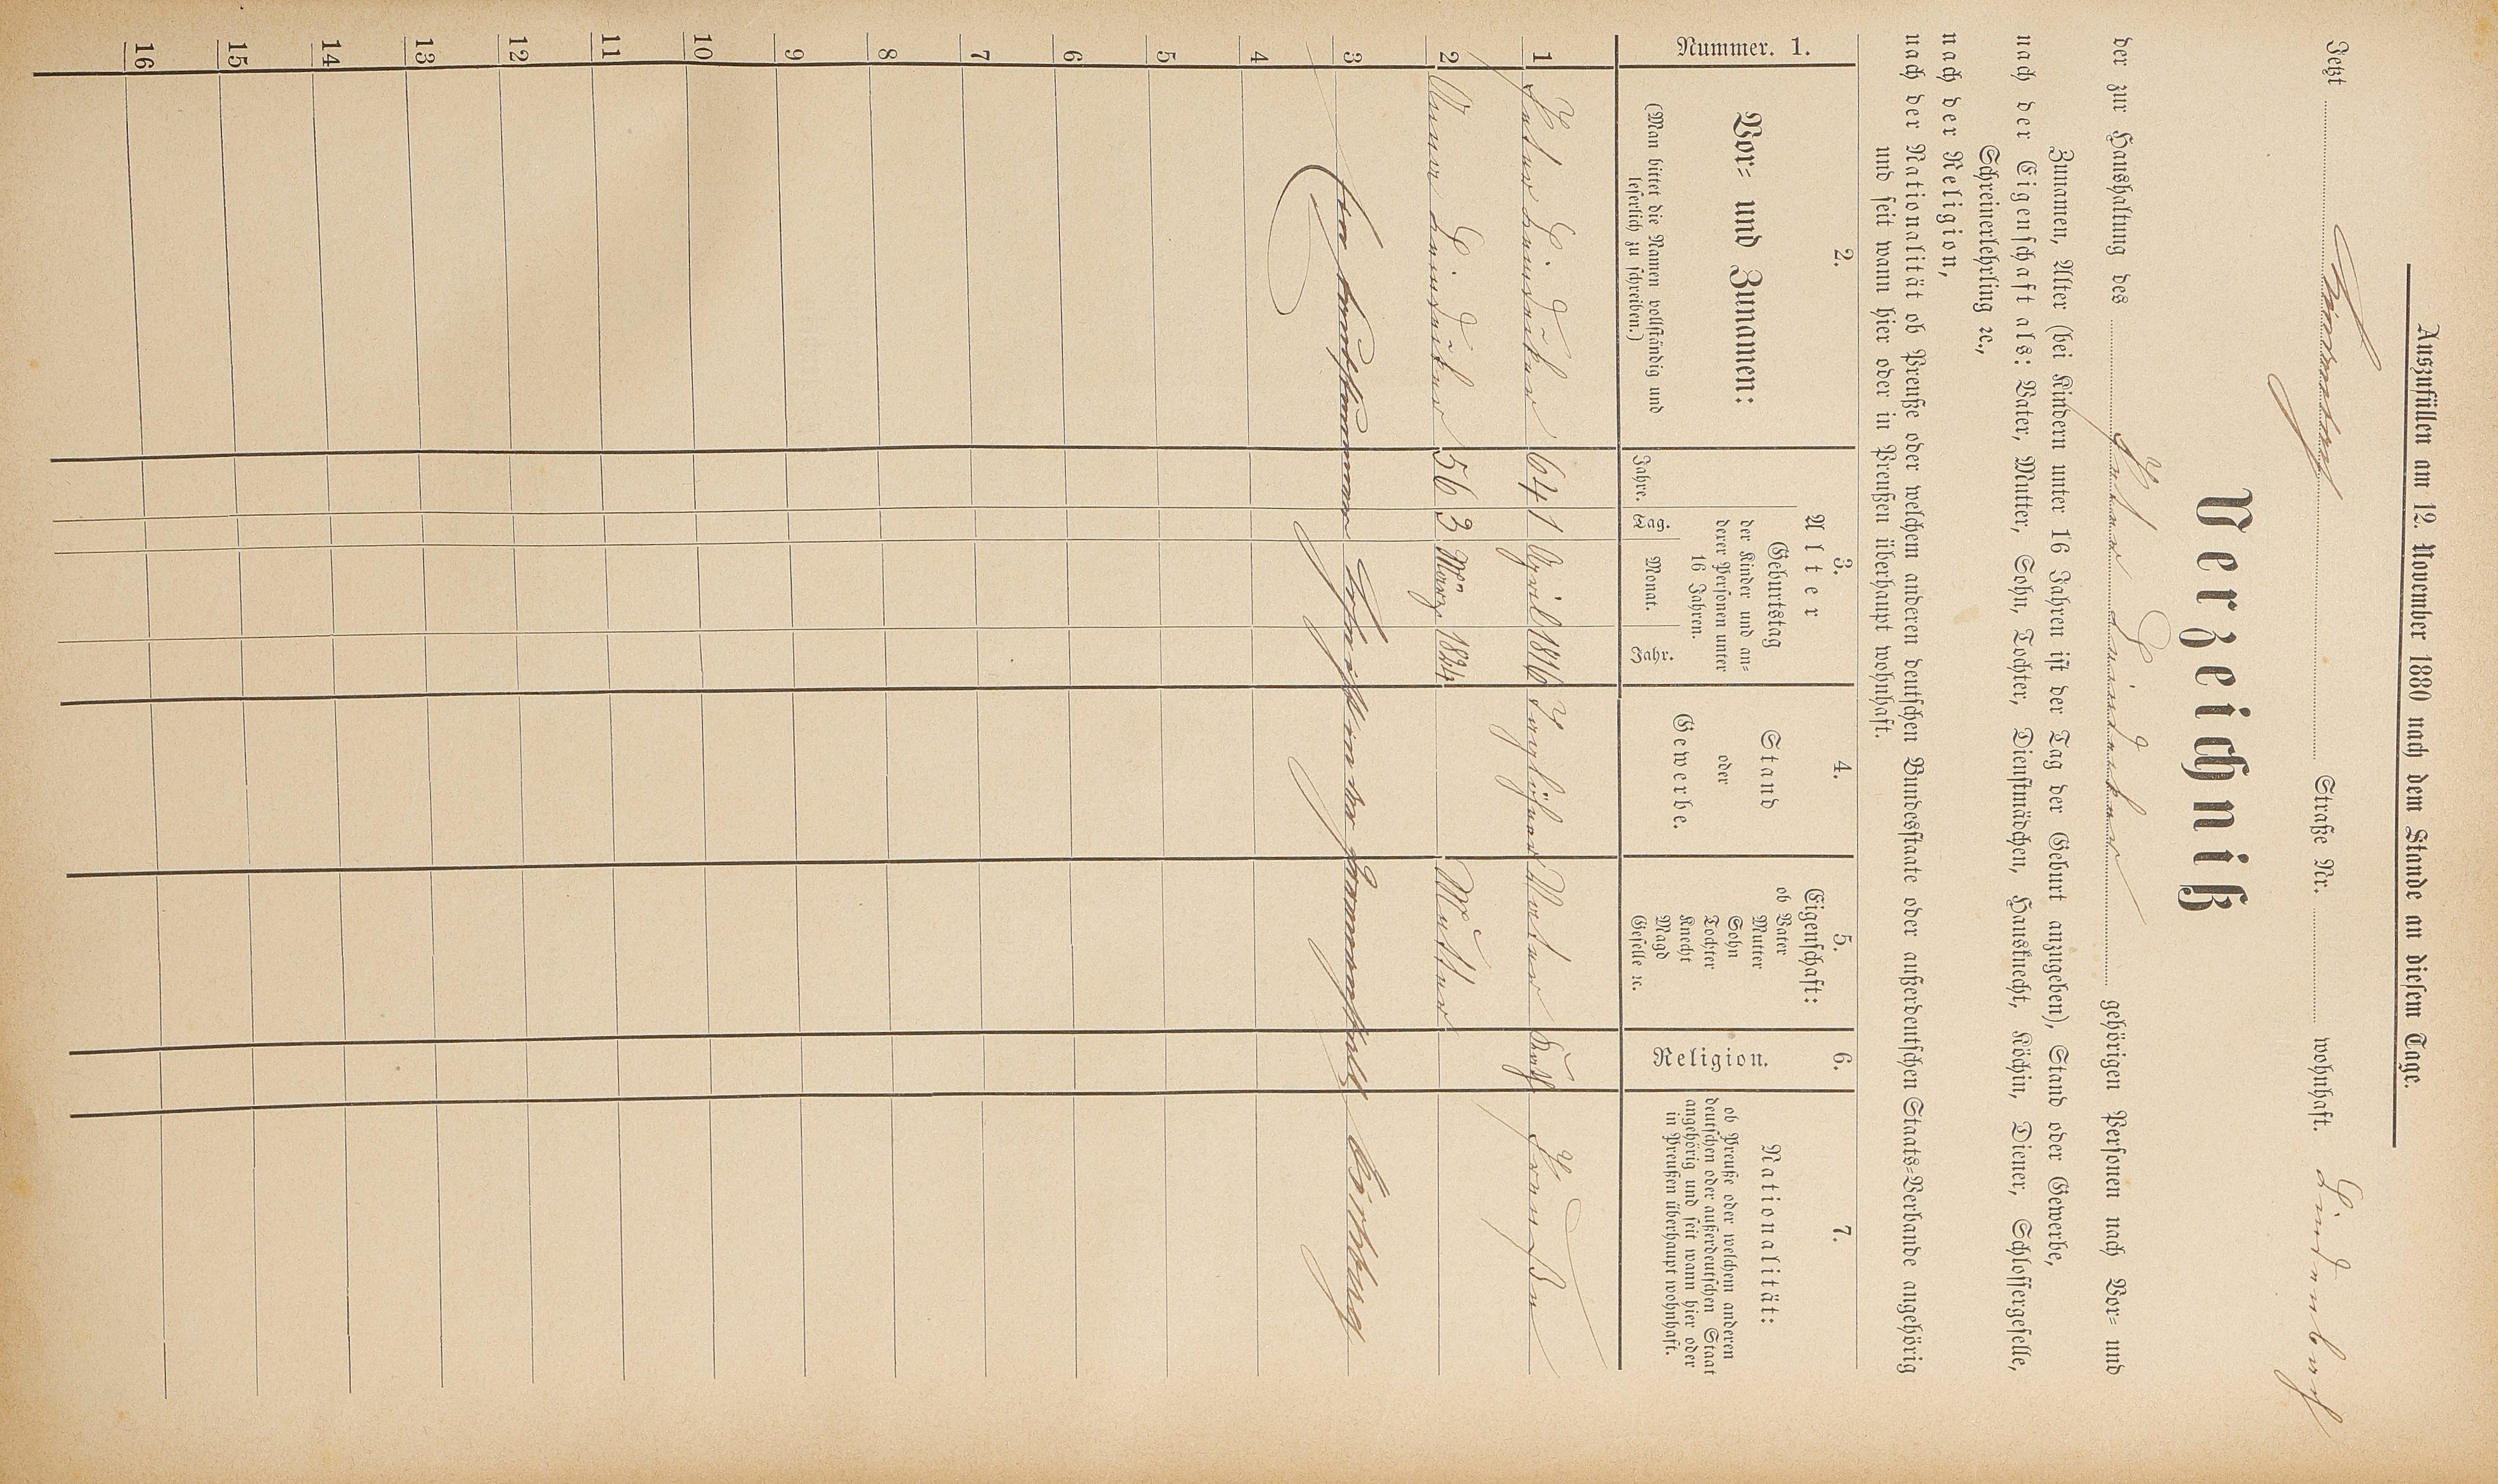 Auszufüllen am 12. November 1880 nach dem Stande an diesem Tage.
Jetzt Straße Nr. wohnhaft.
Verzeichniß
der zur Haushaltung des Peter gehörigen Personen nach Vor= und
Zunamen, Alter (bei Kindern unter 16 Jahren ist der Tag der Geburt anzugeben), Stand oder Gewerbe,
nach der Eigenschaft als: Vater, Mutter, Sohn, Tochter, Dienstmädchen, Hausknecht, Köchin, Diener, Schlossergeselle,
Schreinerlehrling ꝛc.,
nach der Religion,
nach der Nationalität ob Preuße oder welchem anderen deutschen Bundesstaate oder außerdeutschen Staats=Verbande angehörig
und seit wann hier oder in Preußen überhaupt wohnhaft.
Nummer. 1.
2.
Vor= und Zunamen:
(Man bittet die Namen vollständig und
leserlich zu schreiben.)
3.
Alter
Geburtstag
der Kinder und an=
derer Personen unter
16 Jahren.
Jahre. Tag. Monat. Jahr.
4.
Stand
oder
Gewerbe.
5.
Eigenschaft:
ob Vater
Mutter
Sohn
Tochter
Knecht
Magd
Geselle ꝛc.
6.
Religion.
7.
Nationalität:
ob Preuße oder welchem anderen
deutschen oder außerdeutschen Staat
angehörig und seit wann hier oder
in Preußen überhaupt wohnhaft.
1 Peter 64 1 April 1816 Taglöhner Vater Kath Preußen
2 56 3 März 1824 Mutter
3 Ein
4
5
6
7
8
9
10
11
12
13
14
15
16